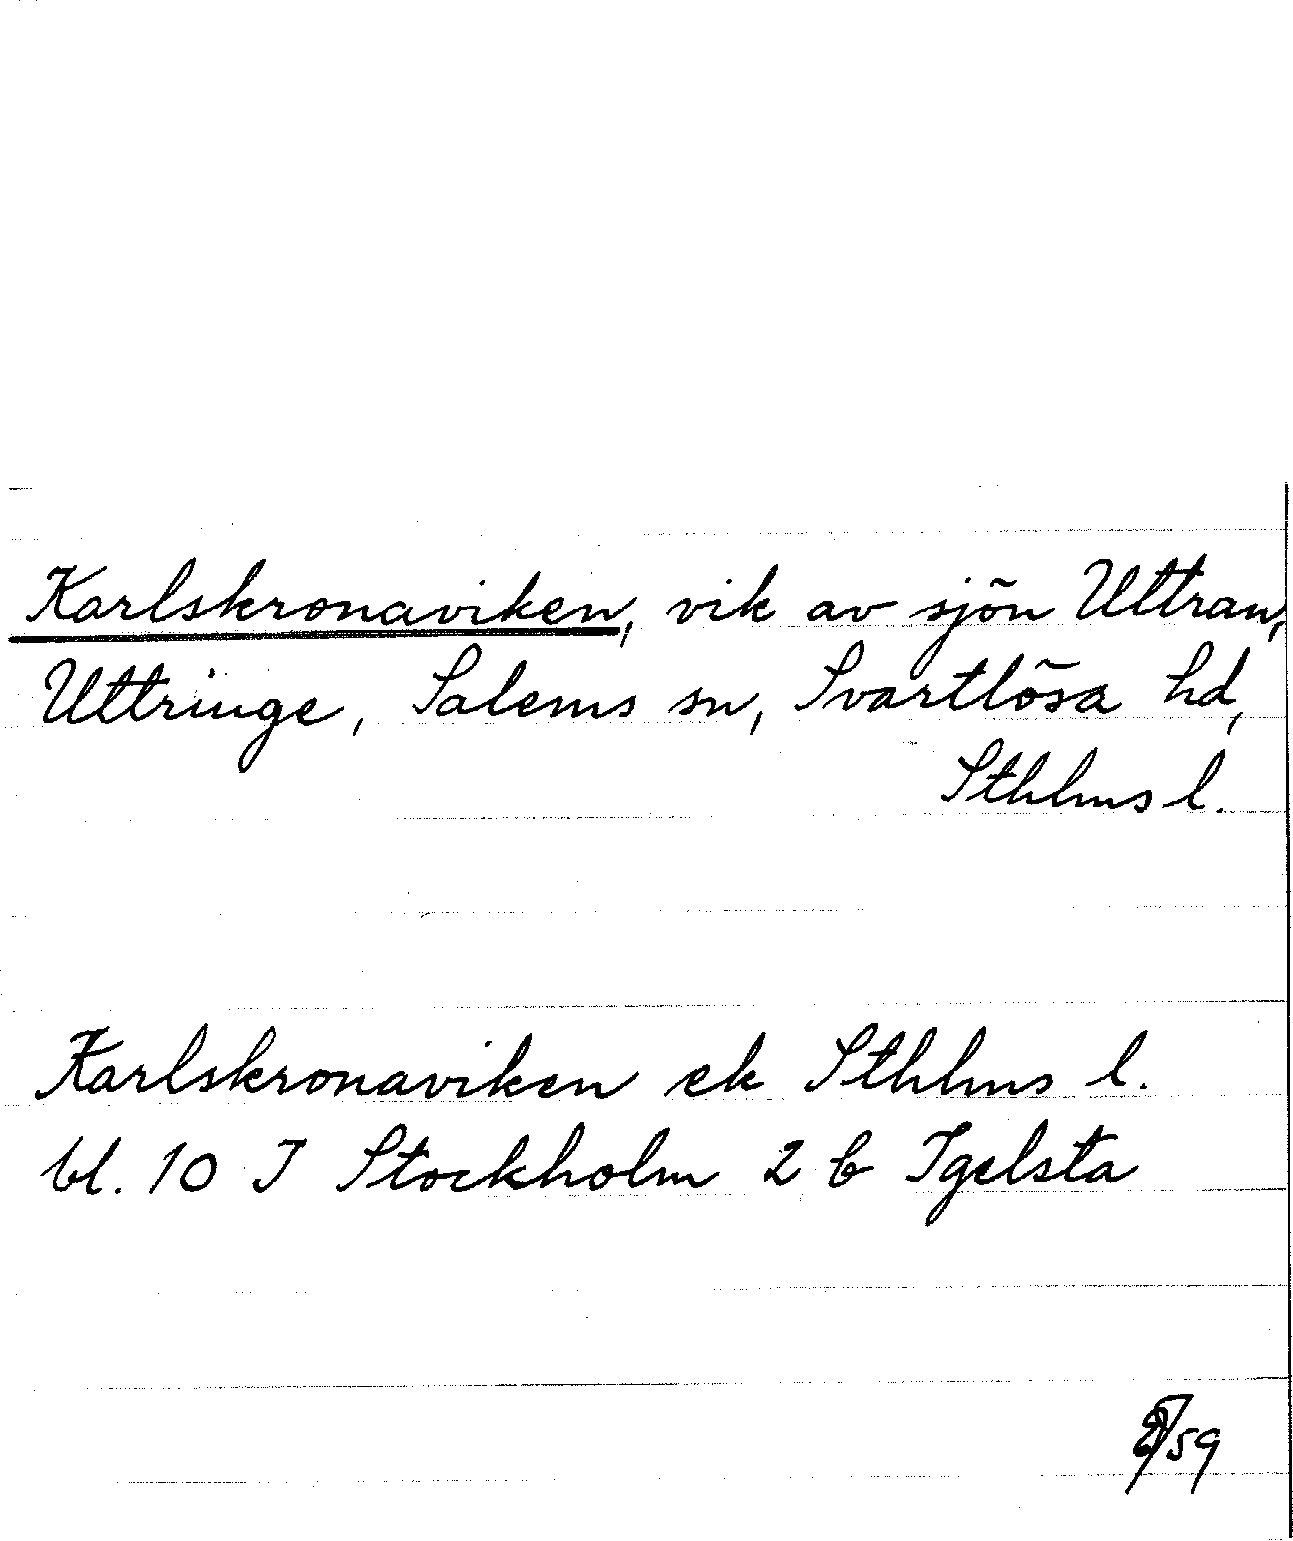 Karlskronaviken, vik av sjön Uttran,
Uttringe, Salems sn, Svartlösa hd,
Sthlms l.
Karlskronaviken ek Sthlms l.
bl. 10 I Stockholm 2 b Igelsta
59